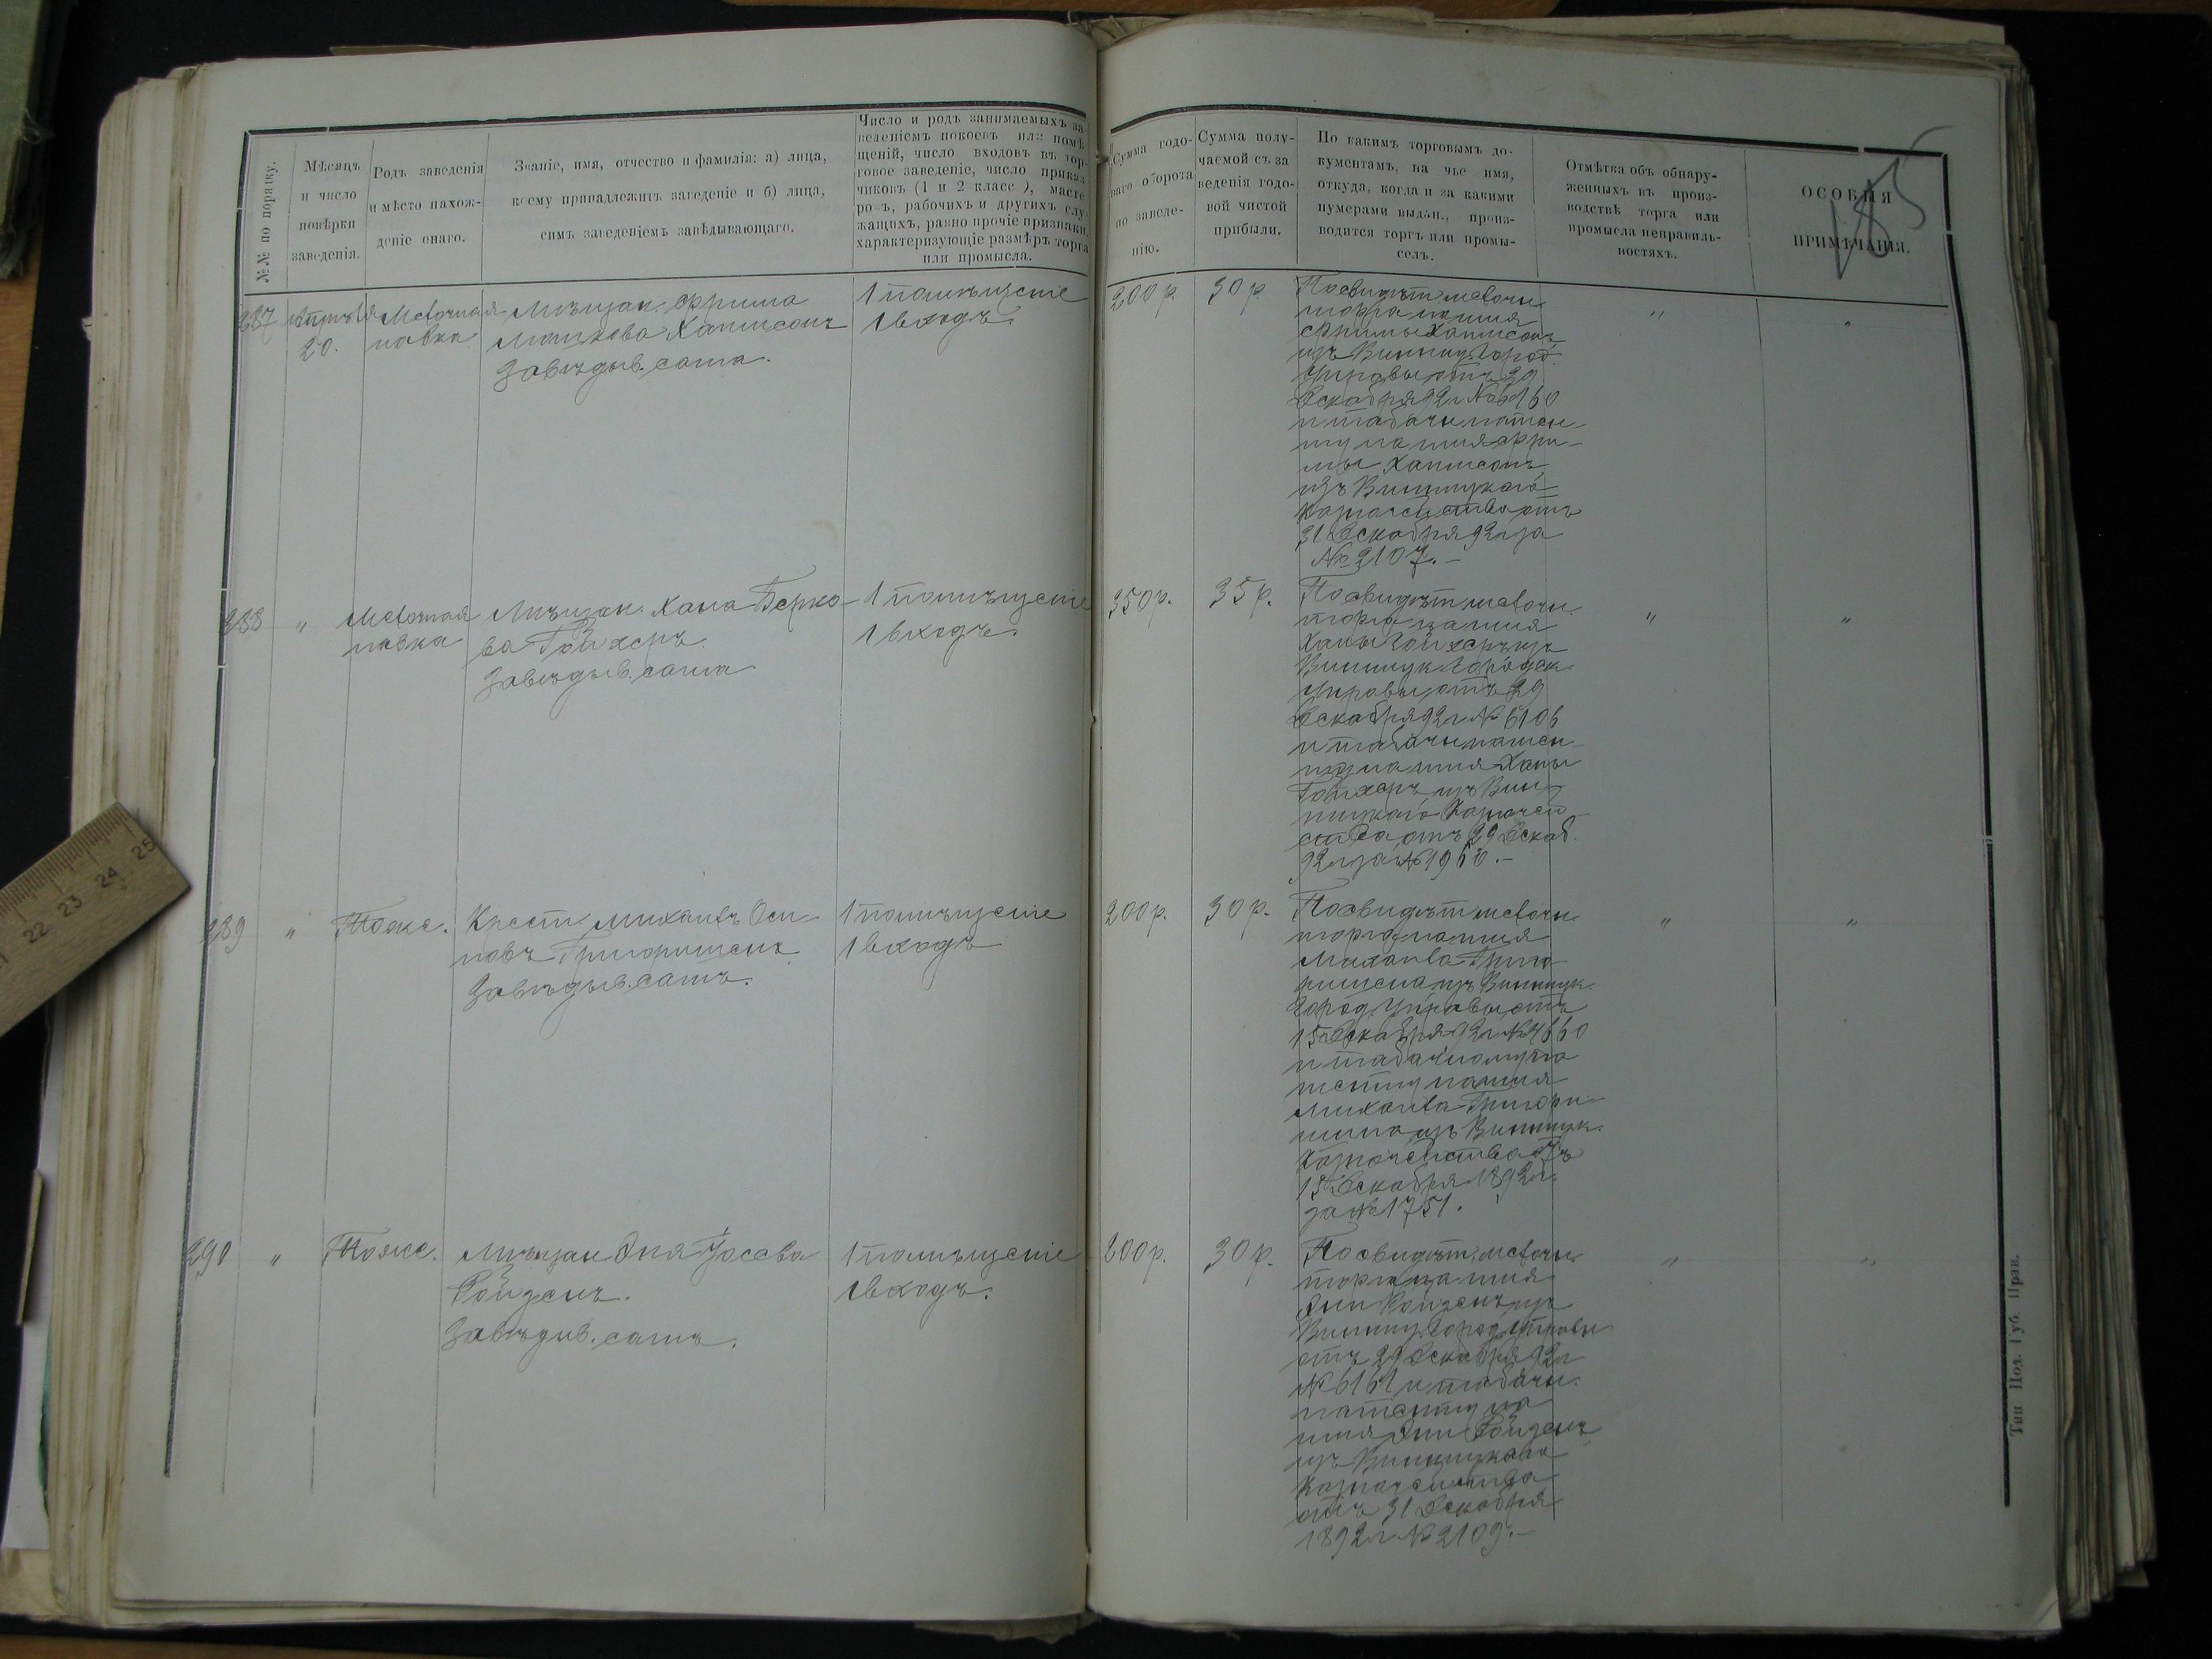 185
№№ по порядку.
Мѣсяцъ
и число
повѣрки
заведенія.
Родъ заведенія
и мѣсто нахож-
деніе онаго.
Званіе, имя, отчество и фамилія: а) лица,
коему принадлежитъ заведеніе и б) лица,
симъ заведеніемъ завѣдывающаго.
Число и родъ занимаемыхъ за-
веденіемъ покоевъ или помѣ-
щеній, число входовъ въ тор-
говое заведеніе, число приказ
чиковъ (1 и 2 класс ), масте
ровъ, рабочихъ и другихъ слу
жащихъ, равно прочіе признаки,
характеризующіе размѣръ торга
или промысла.
Сумма годо-
ваго оборота
по заведе-
нію.
Сумма полу-
чаемой съ за
веденія годо-
вой чистой
прибыли.
По какимъ торговымъ до-
кументамъ, на чье имя,
откуда, когда и за какими
нумерами выдан., произ-
водится торгъ или промы-
селъ.
Отмѣтка объ обнару-
женныхъ въ произ-
водствѣ торга или
промысла неправиль-
ностяхъ.
ОСОБЫЯ
ПРИМѢЧАНІЯ.
287
Апрѣля
20.
Мелочная
лавка
Мѣщан. Фрима
Мошкова
Завѣдыв. сама.
1 помѣщеніе
1 входъ.
200 р.
30 р.
По свидѣт. мелочн.
торга на имя
Фримы
изъ Винниц. Город.
Управы отъ 29
Декабря 92 г № 6160
и табачн. патен-
ту на имя Фри-
мы
изъ Винницкаго
Казначейства отъ
31 Декабря 92 г за
№ 2107. –
"
"
288
"
Мелочная
лавка
Мѣщан. Хана Берко-
ва Гойхеръ
Завѣдыв. сама
1 помѣщеніе
1 входъ.
350 р.
35 р.
По свидѣт. мелочн.
торга на имя
Ханы Гойхеръ изъ
Винницк Городск.
Управы отъ 29
Декабря 92 г № 6106
и табачн. патен
ту на имя Ханы
Гойхеръ изъ Вин-
ницкаго Казначей
ства отъ 29 Декаб.
92 г за № 1960. –
"
"
289
"
Тоже.
Крест. Михаилъ Оси
повъ
Завѣдыв. самъ.
1 помѣщеніе
1 входъ
200 р.
30 р.
По свидѣт. мелочн.
торга на имя
Михаила
изъ Винницк.
Город. Управы отъ
15 Декабря 92 г № 4660
и табачному па
тенту на имя
Михаила
изъ Винницк.
Казначейства отъ
15 Декабря 1892 г.
за № 1751.
"
"
290
"
Тоже.
Мѣщан Эля Іосева
Ройзенъ.
Завѣдыв. самъ.
1 помѣщеніе
1 входъ.
200 р.
30 р.
По свидѣт. мелочн.
торга на имя
Ройзенъ изъ
Винниц. Город. Управы
отъ 29 Декабря 92 г
№ 6161 и табачн.
патенту на
имя Ройзенъ
изъ Винницкаго
Казначейства
отъ 31 Декабря
1892 г № 2109. –
"
"
Тип. Под. Губ. Прав.